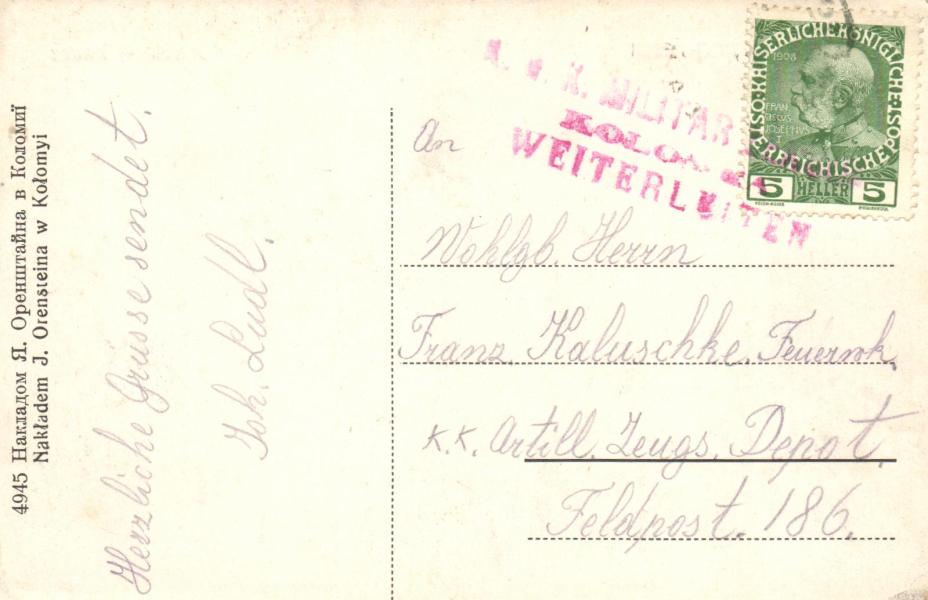 4945 Накладом Я. Оренштайна в Коломиї
Nakładem J. Orensteina w Kołomyi
Herzliche Grüsse sendet.
Joh. Ludl.
K. u. K. MILITÄR
KOLOMEA
WEITERLEITEN
1908
KAISERLICHE KÖNIGLICHE
ÖSTERREICHISCHE POST
5 HELLER 5
An
Wohlgb. Herrn
Franz Kaluschke. Feuerwk.
K. K. Artill. Zeugs. Depot.
Feldpost. 186.